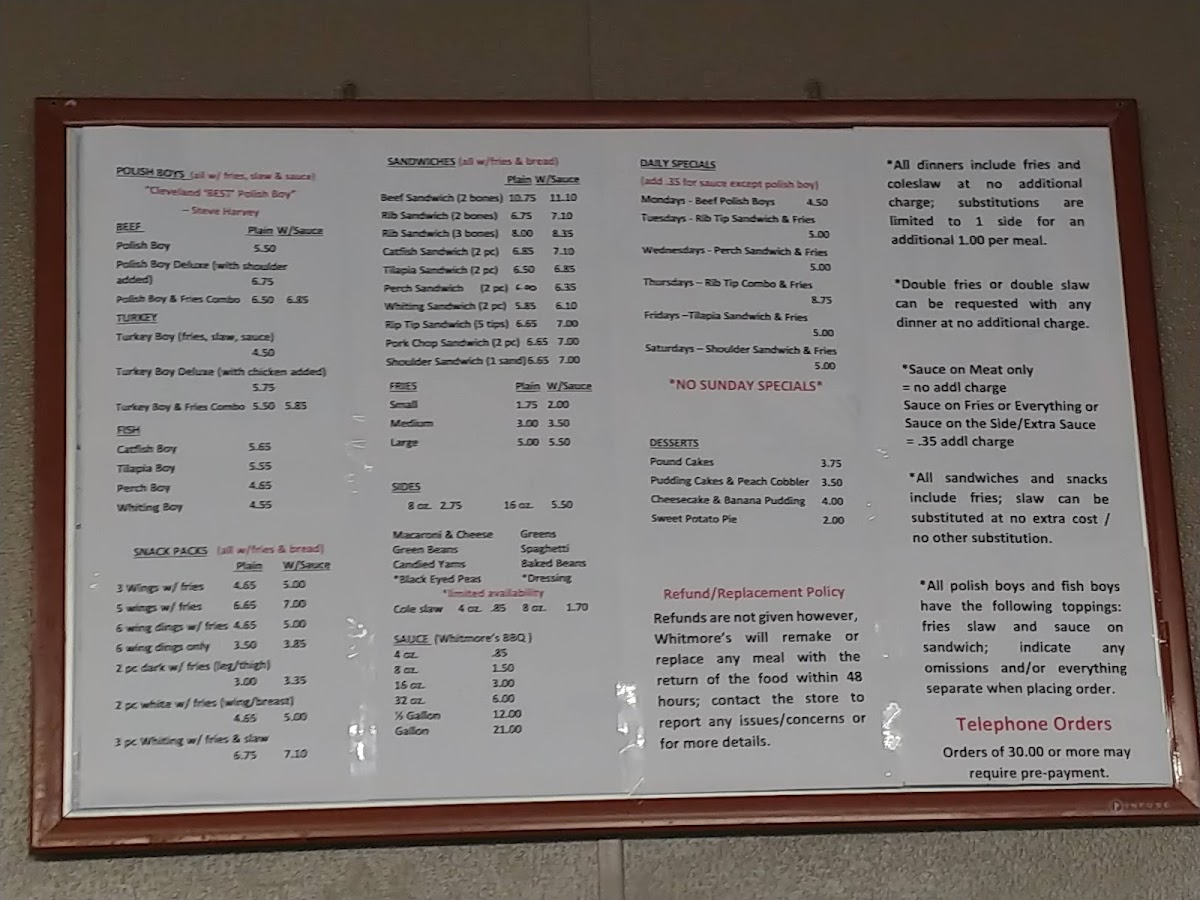 POLISH BOYS (all w/ fries, slaw & sauce)
"Cleveland "BEST" Polish Boy"
– Steve Harvey
BEEF Plain W/Sauce
Polish Boy 5.50
Polish Boy Deluxe (with shoulder
added) 6.75
Polish Boy & Fries Combo 6.50 6.85
TURKEY
Turkey Boy (fries, slaw, sauce)
4.50
Turkey Boy Deluxe (with chicken added)
5.75
Turkey Boy & Fries Combo 5.50 5.85
FISH
Catfish Boy 5.65
Tilapia Boy 5.55
Perch Boy 4.65
Whiting Boy 4.55
SNACK PACKS (all w/fries & bread)
Plain W/Sauce
3 Wings w/ fries 4.65 5.00
5 wings w/ fries 6.65 7.00
6 wing dings w/ fries 4.65 5.00
6 wing dings only 3.50 3.85
2 pc dark w/ fries (leg/thigh)
3.00 3.35
2 pc white w/ fries (wing/breast)
4.65 5.00
3 pc Whiting w/ fries & slaw
6.75 7.10
SANDWICHES (all w/fries & bread)
Plain W/Sauce
Beef Sandwich (2 bones) 10.75 11.10
Rib Sandwich (2 bones) 6.75 7.10
Rib Sandwich (3 bones) 8.00 8.35
Catfish Sandwich (2 pc) 6.85 7.10
Tilapia Sandwich (2 pc) 6.50 6.85
Perch Sandwich (2 pc) 6.35
Whiting Sandwich (2 pc) 5.85 6.10
Rip Tip Sandwich (5 tips) 6.65 7.00
Pork Chop Sandwich (2 pc) 6.65 7.00
Shoulder Sandwich (1 sand) 6.65 7.00
FRIES Plain W/Sauce
Small 1.75 2.00
Medium 3.00 3.50
Large 5.00 5.50
SIDES
8 oz. 2.75 16 oz. 5.50
Macaroni & Cheese Greens
Green Beans Spaghetti
Candied Yams Baked Beans
*Black Eyed Peas *Dressing
*limited availability
Cole slaw 4 oz. .85 8 oz. 1.70
SAUCE (Whitmore's BBQ )
4 oz. .85
8 oz. 1.50
16 oz. 3.00
32 oz. 6.00
½ Gallon 12.00
Gallon 21.00
DAILY SPECIALS
(add .35 for sauce except polish boy)
Mondays - Beef Polish Boys 4.50
Tuesdays - Rib Tip Sandwich & Fries
5.00
Wednesdays - Perch Sandwich & Fries
5.00
Thursdays – Rib Tip Combo & Fries
8.75
Fridays –Tilapia Sandwich & Fries
5.00
Saturdays – Shoulder Sandwich & Fries
5.00
*NO SUNDAY SPECIALS*
DESSERTS
Pound Cakes 3.75
Pudding Cakes & Peach Cobbler 3.50
Cheesecake & Banana Pudding 4.00
Sweet Potato Pie 2.00
Refund/Replacement Policy
Refunds are not given however,
Whitmore's will remake or
replace any meal with the
return of the food within 48
hours; contact the store to
report any issues/concerns or
for more details.
*All dinners include fries and
coleslaw at no additional
charge; substitutions are
limited to 1 side for an
additional 1.00 per meal.
*Double fries or double slaw
can be requested with any
dinner at no additional charge.
*Sauce on Meat only
= no addl charge
Sauce on Fries or Everything or
Sauce on the Side/Extra Sauce
= .35 addl charge
*All sandwiches and snacks
include fries; slaw can be
substituted at no extra cost /
no other substitution.
*All polish boys and fish boys
have the following toppings:
fries slaw and sauce on
sandwich; indicate any
omissions and/or everything
separate when placing order.
Telephone Orders
Orders of 30.00 or more may
require pre-payment.